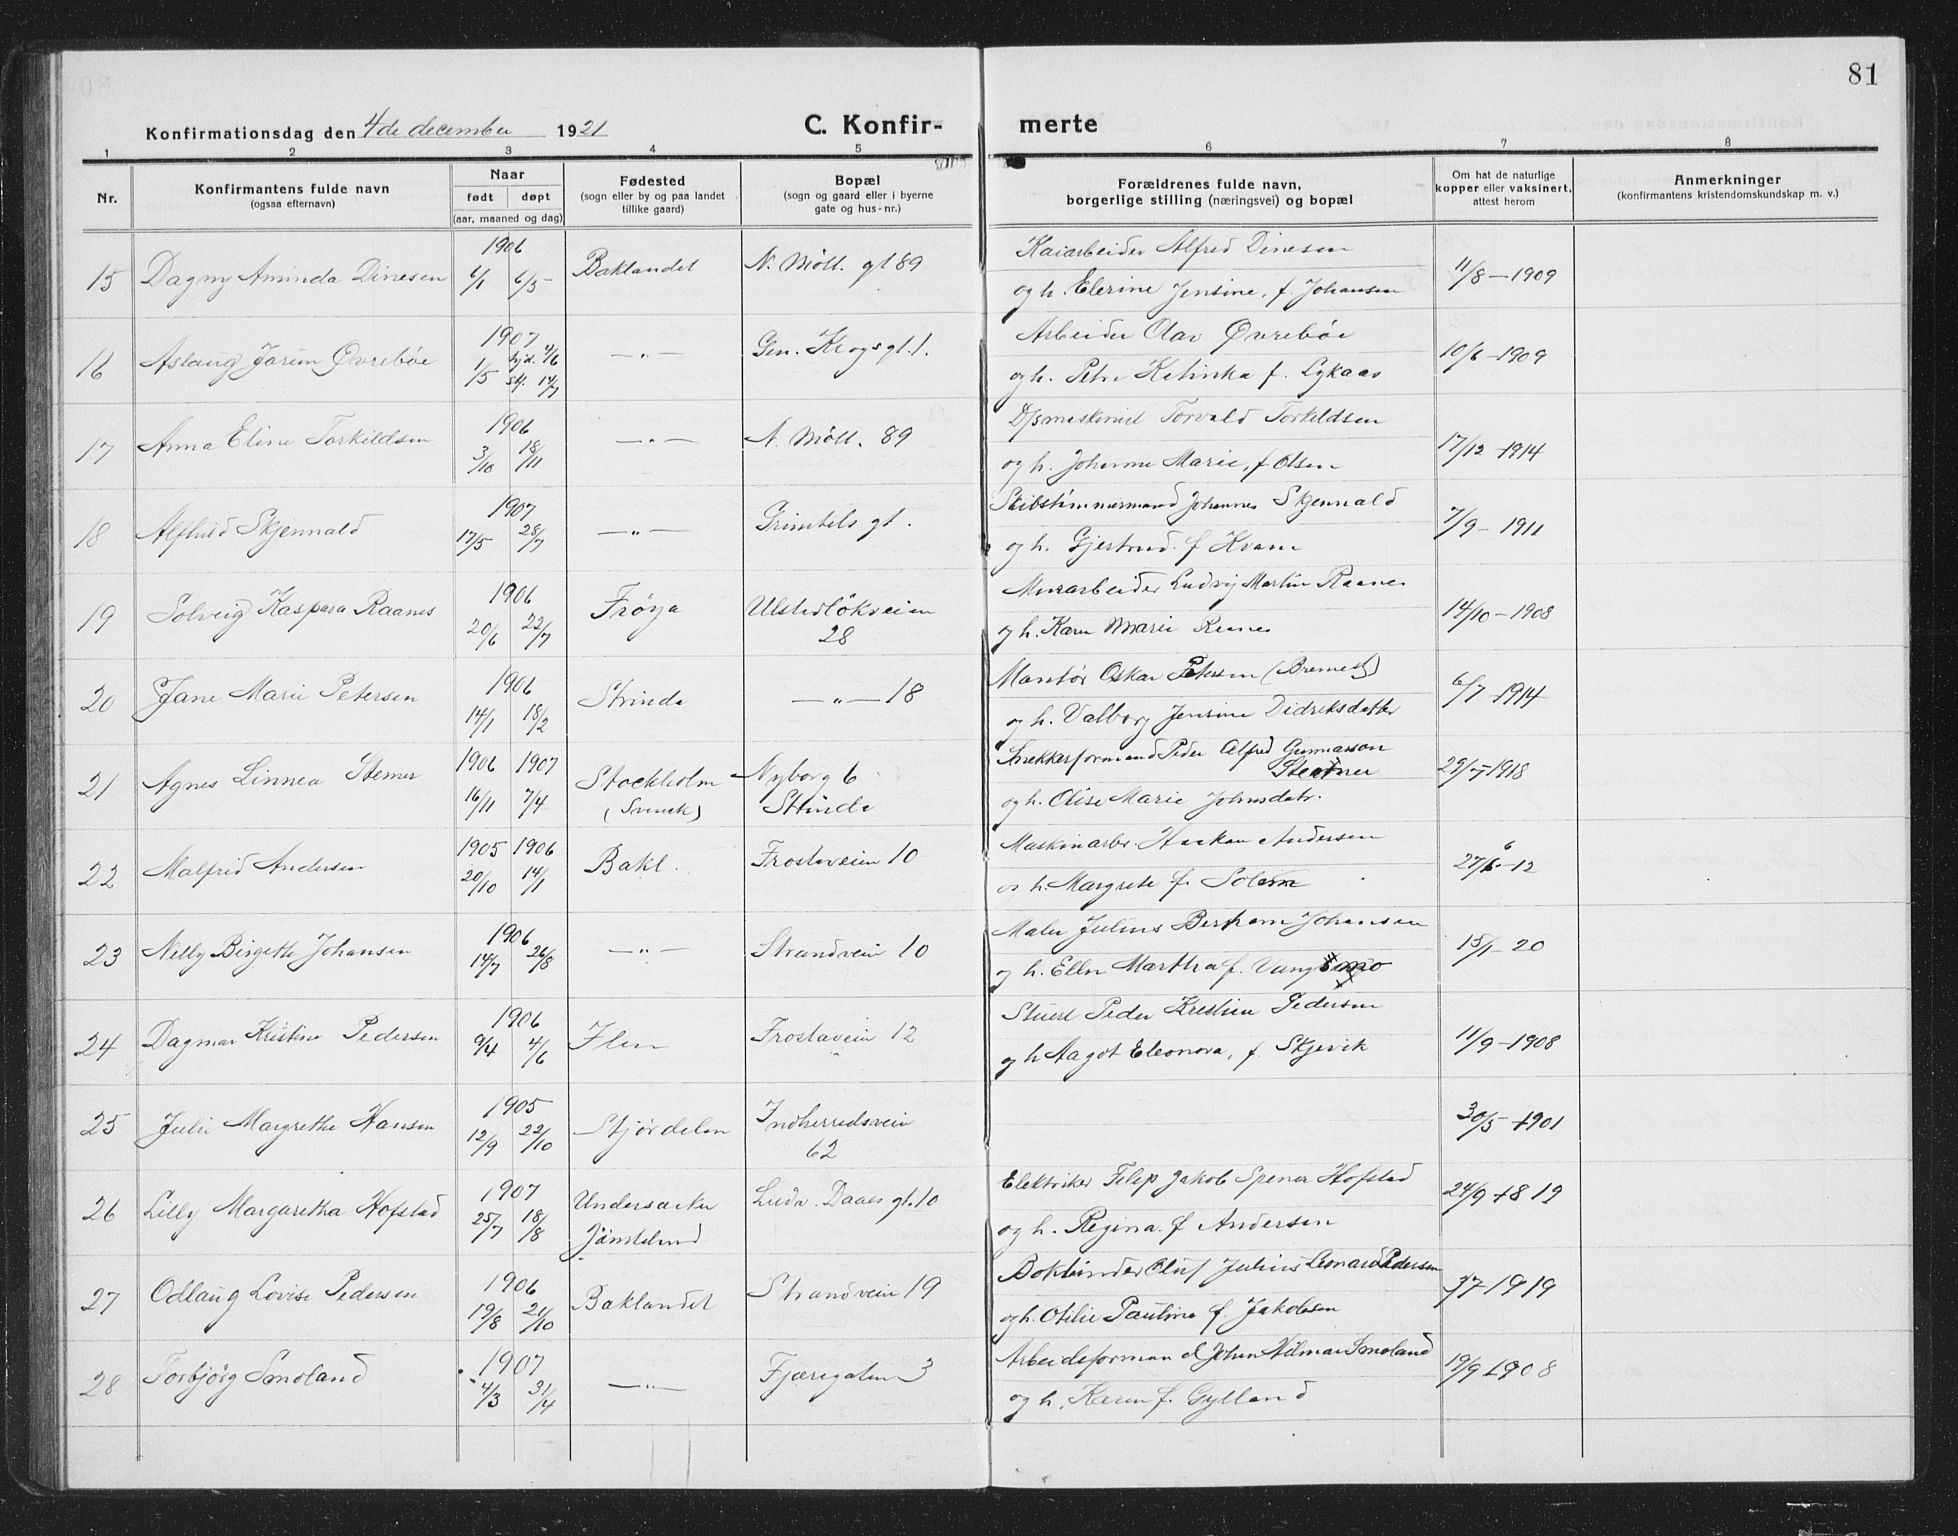 81
Konfirmationsdag den 4de december 1921
C. Konfir- merte
1 2 3 4 5 6 7 8
Nr.
Konfirmantens fulde navn
(ogsaa efternavn)
Naar
født døpt
(aar, maaned og dag)
Fødested
(sogn eller by og paa landet
tillike gaard)
Bopæl
(sogn og gaard eller i byerne
gate og hus-nr.)
Forældrenes fulde navn,
borgerlige stilling (næringsvei) og bopæl
Om hat de naturlige
kopper eller vaksinert,
attest herom
Anmerkninger
(konfirmantens kristendomskundskap m. v.)
1906 Kaiarbeider Alfred Dinesen
15 Dagny Aminda Dinesen 6/1 6/5 Baklandet N. Möll. gt 89 11/8 - 1909
og h. Elerine Jensine, f. Johansen
1907 Arbeider Olav Øvrebøe
16 Aslaug Jorun Øvrebøe 1/5 hjd. 4/6 st. 14/7 — „ — Gen. Krogs gt. 1. 10/6 - 1909
og h. Petra Katinka f. Lykaas
1906 D/s maskinist Torvald Torkildsen
17 Anna Eline Torkildsen 3/10 18/11 — „ — N. Möll. 89 17/12 - 1914
og h. Johanne Marie, f. Olsen
1907 Skibstømmermand Johannes Skjennald
18 Alfhild Skjennald 17/5 28/7 — „ — gt. 7/9 - 1911
og h. Gjertrud f. Kvam
1906 Murarbeider Ludvig Martin Raanes
19 Solveig Kaspara Raanes 20/6 22/7 Frøya Ulstedløkveien 28 14/10 - 1908
og h. Karen Marie Raanes
1906 Montør Oskar Petersen
20 Jane Marie Petersen 14/1 18/2 Strinda — „ — 18 6/7 - 1914
og h. Valborg Jensine Didriksdatter
1906 1907 Snekkerformand Peder Alfred Gunnarson
21 Agnes Linnea Stenner 16/11 7/4 Stockholm (Svensk) Nyborg 6 Strinda
og h. Olise Marie Johnsdatr.
1905 1906 Maskinarbr. Haakon Andersen
22 Malfrid Andersen 20/10 14/1 Bakl. Frostaveien 10 27/6 - 12
og h. Margrete f. Solem
1906 Maler Julius Bertram Johansen
23 Nelly Birgette Johansen 14/7 26/8 — „ — Strandveien 10 15/1 - 20
og h. Ellen Martha f.
1906 Stuert Peder Kristian Pedersen
24 Dagmar Kristine Pedersen 9/4 4/6 Ilen Frostaveien 12 11/9 - 1908
og h. Aagot Eleonora, f. Skjevik
1905
25 Julie Margrethe Hansen 12/9 22/10 Stjørdalen Indherredsveien 62 30/5 - 1901
1907 Elektriker Filip Jakob Spener Hofstad
26 Lilly Margaretha Hofstad 25/7 18/8 Undersaker Jämtelund Ludv. Daaes gt. 10 24/9 - 1819
og h. Regina f. Andersen
1906 Bokbinder Oluf Julius Leonard Pedersen
27 Odlaug Lovise Pedersen 19/8 21/10 Baklandet Strandveien 19 1919
og h. Otilie Pauline f. Jakobsen
1907 Arbeidsformand John Hilmar Smoland
28 Torbjørg Smoland 4/3 31/4 — „ — Fjæregaten 3 19/9 1908
og h. Karen f. Gylland